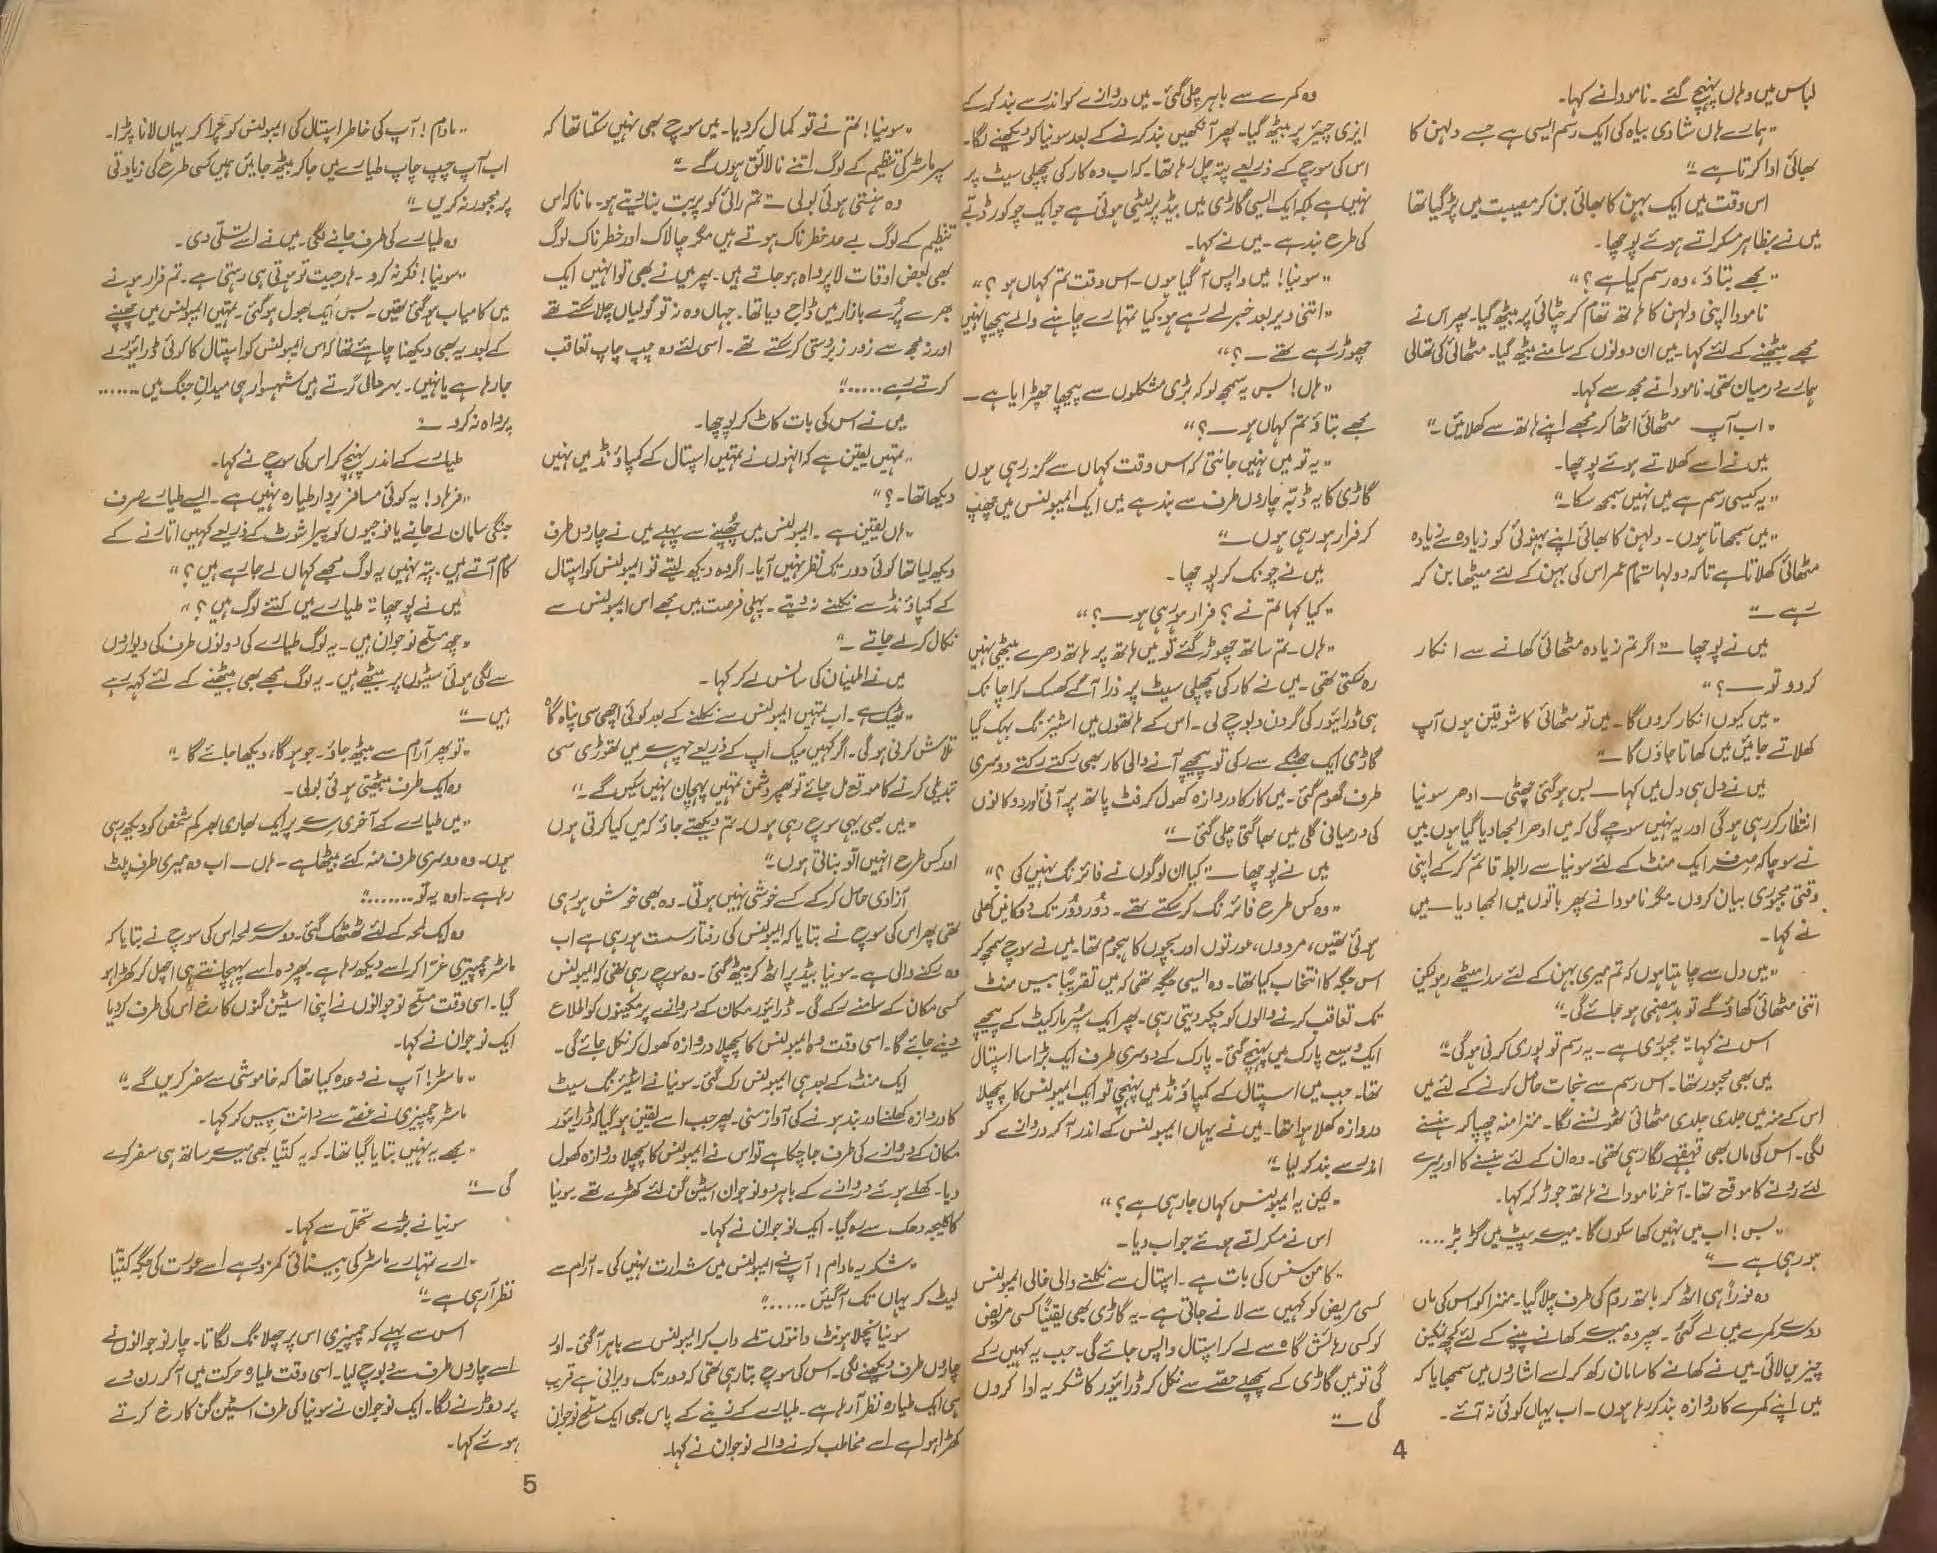 لباس میں وہاں پہنچ گئے۔ نامودا نے کہا۔
"ہمارے ہاں شادی بیاہ کی ایک رسم ایسی ہے جسے دلہن کا
بھائی ادا کرتا ہے"
اس وقت میں ایک بہن کا بھائی بن کر مصیبت میں پڑ گیا تھا
میں نے بظاہر مسکراتے ہوئے پوچھا۔
"مجھے بتاؤ، وہ رسم کیا ہے؟"
نامودا اپنی دلہن کا ہاتھ تھام کر چٹائی پر بیٹھ گیا۔ پھر اس نے
مجھے بیٹھنے کے لئے کہا۔ میں ان دونوں کے سامنے بیٹھ گیا۔ مٹھائی کی تھالی
ہمارے درمیان تھی۔ نامودا نے مجھ سے کہا۔
"اب آپ مٹھائی اٹھا کر مجھے اپنے ہاتھ سے کھلائیں۔"
میں نے اسے کھلاتے ہوئے پوچھا۔
"یہ کیسی رسم ہے میں نہیں سمجھ سکا۔"
"میں سمجھاتا ہوں۔ دلہن کا بھائی اپنے بہنوئی کو زیادہ سے زیادہ
مٹھائی کھلاتا ہے تاکہ دولہا تمام عمر اس کی بہن کے لئے میٹھا بن کر
رہے۔"
میں نے پوچھا۔ "اگر تم زیادہ مٹھائی کھانے سے انکار
کر دو تو ــ؟"
"میں کیوں انکار کروں گا۔ میں تو مٹھائی کا شوقین ہوں آپ
کھلاتے جائیں میں کھاتا جاؤں گا۔"
میں نے دل ہی دل میں کہا ــ لبس ہو گئی چھٹی ــ ادھر سونیا
انتظار کر رہی ہو گی اور یہ نہیں سوچے گی کہ میں ادھر الجھا دیا گیا ہوں میں
نے سوچا کہ صرف ایک منٹ کے لئے سونیا سے رابطہ قائم کر کے اپنی
وقتی مجبوری بیان کروں۔ مگر نامودا نے پھر باتوں میں الجھا دیا ــ میں
نے کہا۔
"میں دل سے چاہتا ہوں کہ تم میری بہن کے لئے سدا میٹھے رہو لیکن
اتنی مٹھائی کھاؤ گے تو بدہضمی ہو جائے گی۔"
اس نے کہا۔ "مجبوری ہے۔ یہ رسم تو پوری کرنی ہو گی۔"
میں بھی مجبور تھا۔ اس رسم سے نجات حاصل کرنے کے لئے میں
اس کے منہ میں جلدی جلدی مٹھائی ٹھونسنے لگا۔ منزا منہ چھپا کر ہنسنے
لگی۔ اس کی ماں بھی قہقہے لگا رہی تھی۔ وہ ان کے لئے ہنسنے کا اور میرے
لئے رونے کا موقع تھا۔ آخر نامودا نے ہاتھ جوڑ کر کہا۔
"بس! اب میں نہیں کھا سکوں گا۔ میرے پیٹ میں گڑ بڑ ....
ہو رہی ہے ــ"
وہ فوراً ہی اٹھ کر باتھ روم کی طرف چلا گیا۔ منزا کو اس کی ماں
دوسرے کمرے میں لے گئی۔ پھر وہ میرے کھانے پینے کے لئے کچھ نمکین
چیزیں لائی۔ میں نے کھانے کا سامان رکھ کر اسے اشاروں میں سمجھایا کہ
میں اپنے کمرے کا دروازہ بند کر رہا ہوں۔ اب یہاں کوئی نہ آئے۔
وہ کمرے سے باہر چلی گئی۔ میں دروازے کو اندر سے بند کر کے
ایزی چیئر پر بیٹھ گیا۔ پھر آنکھیں بند کرنے کے بعد سونیا کو دیکھنے لگا۔
اس کی سوچ کے ذریعے پتہ چل رہا تھا۔ کہ اب وہ کار کی پچھلی سیٹ پر
نہیں ہے بلکہ ایک ایسی گاڑی میں بیڈ پر لیٹی ہوئی ہے جو ایک چوکور ڈبے
کی طرح بند ہے۔ میں نے کہا۔
"سونیا! میں واپس آ گیا ہوں۔ اس وقت تم کہاں ہو؟"
"اتنی دیر بعد خبر لے رہے ہو کیا تمہارے چاہنے والے پیچھا نہیں
چھوڑ رہے تھے ــ؟"
"ہاں! بس یہ سمجھ لو کہ بڑی مشکلوں سے پیچھا چھڑایا ہے ــ
مجھے بتاؤ تم کہاں ہو ــ؟"
"یہ تو میں نہیں جانتی کہ اس وقت کہاں سے گزر رہی ہوں
گاڑی کا یہ ڈبّہ چاروں طرف سے بند ہے میں ایک ایمبولنس میں چھپ
کر فرار ہو رہی ہوں ــ"
میں نے چونک کر پوچھا۔
"کیا کہا تم نے؟ فرار ہو رہی ہو ــ؟"
"ہاں۔ تم ساتھ چھوڑ گئے تو میں ہاتھ پر ہاتھ دھرے بیٹھی نہیں
رہ سکتی تھی۔ میں نے کار کی پچھلی سیٹ پر ذرا آگے کھسک کر اچانک
ہی ڈرائیور کی گردن دبوچ لی۔ اس کے ہاتھوں میں اسٹیئرنگ بہک گیا
گاڑی ایک جھٹکے سے رکی تو پیچھے آنے والی کار بھی رکتے رکتے دوسری
طرف گھوم گئی۔ میں کار کا دروازہ کھول کر فٹ پاتھ پر آئی اور دوکانوں
کی درمیانی گلی میں بھاگتی چلی گئی ــ"
میں نے پوچھا ــ "کیا ان لوگوں نے فائرنگ نہیں کی؟"
"وہ کس طرح فائرنگ کر سکتے تھے۔ دُور دُور تک دوکانیں کھلی
ہوئی تھیں، مردوں، عورتوں اور بچوں کا ہجوم تھا۔ میں نے سوچ سمجھ کر
اس جگہ کا انتخاب کیا تھا۔ وہ ایسی جگہ تھی کہ میں تقریباً بیس منٹ
تک تعاقب کرنے والوں کو چکر دیتی رہی۔ پھر ایک سُپر مارکیٹ کے پیچھے
ایک وسیع پارک میں پہنچ گئی۔ پارک کے دوسری طرف ایک بڑا سا اسپتال
تھا۔ جب میں اسپتال کے کمپاؤنڈ میں پہنچی تو ایک ایمبولنس کا پچھلا
دروازہ کھلا ہوا تھا۔ میں نے یہاں ایمبولنس کے اندر آ کر دروازے کو
اندر سے بند کر لیا۔"
"لیکن یہ ایمبولنس کہاں جا رہی ہے؟"
اس نے مسکراتے ہوئے جواب دیا۔
"کامن سنس کی بات ہے۔ اسپتال سے نکلنے والی خالی ایمبولنس
کسی مریض کو کہیں سے لانے جاتی ہے۔ یہ گاڑی بھی یقیناً کسی مریض
کو کسی رہائش گاہ سے لے کر اسپتال واپس جائے گی۔ جب یہ کہیں رکے
گی تو میں گاڑی کے پچھلے حصے سے نکل کر ڈرائیور کا شکریہ ادا کروں
گی ــ"
4
"سونیا! تم نے تو کمال کر دیا۔ میں سوچ بھی نہیں سکتا تھا کہ
سپر ماسٹر کی تنظیم کے لوگ اتنے نالائق ہوں گے۔"
وہ ہنستی ہوئی بولی ــ "تم رائی کو پربت بنا لیتے ہو۔ مانا کہ اس
تنظیم کے لوگ بے حد خطرناک ہوتے ہیں مگر چالاک اور خطرناک لوگ
بھی بعض اوقات لاپرواہ ہو جاتے ہیں۔ پھر میں نے بھی تو انہیں ایک
بھرے پُرے بازار میں ڈاج دیا تھا۔ جہاں وہ نہ تو گولیاں چلا سکتے تھے
اور نہ مجھ سے زور زبردستی کر سکتے تھے۔ اسی لئے وہ چپ چاپ تعاقب
کرتے رہے ....."
میں نے اس کی بات کاٹ کر پوچھا۔
"تمہیں یقین ہے کہ انہوں نے تمہیں اسپتال کے کمپاؤنڈ میں نہیں
دیکھا تھا۔؟"
"ہاں یقین ہے۔ ایمبولنس میں چُھپنے سے پہلے میں نے چاروں طرف
دیکھ لیا تھا کوئی دور تک نظر نہیں آیا۔ اگر وہ دیکھ لیتے تو ایمبولنس کو اسپتال
کے کمپاؤنڈ سے نکلنے نہ دیتے۔ پہلی فرصت میں مجھے اس ایمبولنس سے
نکال کر لے جاتے ــ"
میں نے اطمینان کی سانس لے کر کہا۔
"ٹھیک ہے۔ اب تمہیں ایمبولنس سے نکلنے کے بعد کوئی اچھی سی پناہ گاہ
تلاش کرنی ہو گی۔ اگر کہیں میک اپ کے ذریعے چہرے میں تھوڑی سی
تبدیلی کرنے کا موقع مل جائے تو پھر دشمن تمہیں پہچان نہیں سکیں گے۔"
"میں بھی یہی سوچ رہی ہوں۔ تم دیکھتے جاؤ کہ میں کیا کرتی ہوں
اور کس طرح انہیں الّو بناتی ہوں۔"
آزادی حاصل کر کے کسے خوشی نہیں ہوتی۔ وہ بھی خوش ہو رہی
تھی پھر اس کی سوچ نے بتایا کہ ایمبولنس کی رفتار سست ہو رہی ہے اب
وہ رکنے والی ہے۔ سونیا بیڈ پر اٹھ کر بیٹھ گئی۔ وہ سوچ رہی تھی کہ ایمبولنس
کسی مکان کے سامنے رکے گی۔ ڈرائیور مکان کے دروازے پر مکینوں کو اطلاع
دینے جائے گا۔ اسی وقت وہ ایمبولنس کا پچھلا دروازہ کھول کر نکل جائے گی۔
ایک منٹ کے بعد ہی ایمبولنس رک گئی۔ سونیا نے اسٹیئرنگ سیٹ
کا دروازہ کھلنے اور بند ہونے کی آواز سنی۔ پھر جب اسے یقین ہو گیا کہ ڈرائیور
مکان کے دروازے کی طرف جا چکا ہے تو اس نے ایمبولنس کا پچھلا دروازہ کھول
دیا۔ کھلے ہوئے دروازے کے باہر دو نوجوان اسٹین گن لئے کھڑے تھے۔ سونیا
کا کلیجہ دھک سے رہ گیا۔ ایک نوجوان نے کہا۔
"شکریہ مادام! آپ نے ایمبولنس میں شرارت نہیں کی۔ آرام سے
لیٹ کر یہاں تک آ گئیں ....."
سونیا نچلا ہونٹ دانتوں تلے داب کر ایمبولنس سے باہر آ گئی۔ اور
چاروں طرف دیکھنے لگی۔ اس کی سوچ بتا رہی تھی کہ دور تک ویرانی ہے قریب
ہی ایک طیارہ نظر آ رہا ہے۔ طیارے کے زینے کے پاس بھی ایک مسلح نوجوان
کھڑا ہوا ہے اسے مخاطب کرنے والے نوجوان نے کہا۔
"مادام! آپ کی خاطر اسپتال کی ایمبولنس کو چُرا کر یہاں لانا پڑا۔
اب آپ چپ چاپ طیارے میں جا کر بیٹھ جائیں ہمیں کسی طرح کی زیادتی
پر مجبور نہ کریں۔"
وہ طیارے کی طرف جانے لگی۔ میں نے اسے تسلّی دی۔
"سونیا! فکر نہ کرو۔ ہار جیت تو ہوتی ہی رہتی ہے۔ تم فرار ہونے
میں کامیاب ہو گئی تھیں۔ بس ایک بھول ہو گئی۔ تمہیں ایمبولنس میں چھپنے
کے بعد یہ بھی دیکھنا چاہئے تھا کہ اس ایمبولنس کو اسپتال کا کوئی ڈرائیور لے
جا رہا ہے یا نہیں۔ بہر حال گرتے ہیں شہسوار ہی میدانِ جنگ میں .......
پرواہ نہ کرو ــ"
طیارے کے اندر پہنچ کر اس کی سوچ نے کہا۔
"فرہاد! یہ کوئی مسافر بردار طیارہ نہیں ہے۔ ایسے طیارے صرف
جنگی سامان لے جانے یا فوجیوں کو پیراشوٹ کے ذریعے کہیں اتارنے کے
کام آتے ہیں۔ پتہ نہیں یہ لوگ مجھے کہاں لے جا رہے ہیں؟"
میں نے پوچھا "طیارے میں کتنے لوگ ہیں؟"
"چھ مسلح نوجوان ہیں۔ یہ لوگ طیارے کی دونوں طرف کی دیواروں
سے لگی ہوئی سیٹوں پر بیٹھے ہیں۔ یہ لوگ مجھے بھی بیٹھنے کے لئے کہہ رہے
ہیں ــ"
"تو پھر آرام سے بیٹھ جاؤ۔ جو ہو گا، دیکھا جائے گا۔"
وہ ایک طرف بیٹھتی ہوئی بولی۔
"میں طیارے کے آخری سرے پر ایک بھاری بھر کم شخص کو دیکھ رہی
ہوں۔ وہ دوسری طرف منہ کئے بیٹھا ہے۔ ہاں ــ اب وہ میری طرف پلٹ
رہا ہے۔ اوہ یہ تو ........"
وہ ایک لمحہ کے لئے ٹھٹھک گئی۔ دوسرے لمحہ اس کی سوچ نے بتایا کہ
ماسٹر چمپنزی غرّا کر اسے دیکھ رہا ہے۔ پھر وہ اسے پہچانتے ہی اچھل کر کھڑا ہو
گیا۔ اسی وقت مسلح نوجوانوں نے اپنی اسٹین گنوں کا رخ اس کی طرف کر دیا
ایک نوجوان نے کہا۔
"ماسٹر! آپ نے وعدہ کیا تھا کہ خاموشی سے سفر کریں گے۔"
ماسٹر چمپنزی نے غصّے سے دانت پیس کر کہا۔
"مجھے یہ نہیں بتایا گیا تھا۔ کہ یہ کتیا بھی میرے ساتھ ہی سفر کرے
گی ــ"
سونیا نے بڑے تحمل سے کہا۔
"ارے تمہارے ماسٹر کی بینائی کمزور ہے اسے عورت کی جگہ کتیا
نظر آ رہی ہے۔"
اس سے پہلے کہ چمپنزی اس پر چھلانگ لگاتا۔ چار نوجوانوں نے
اسے چاروں طرف سے دبوچ لیا۔ اسی وقت طیارہ حرکت میں آ کر رن وے
پر دوڑنے لگا۔ ایک نوجوان نے سونیا کی طرف اسٹین گن کا رخ کرتے
ہوئے کہا۔
5